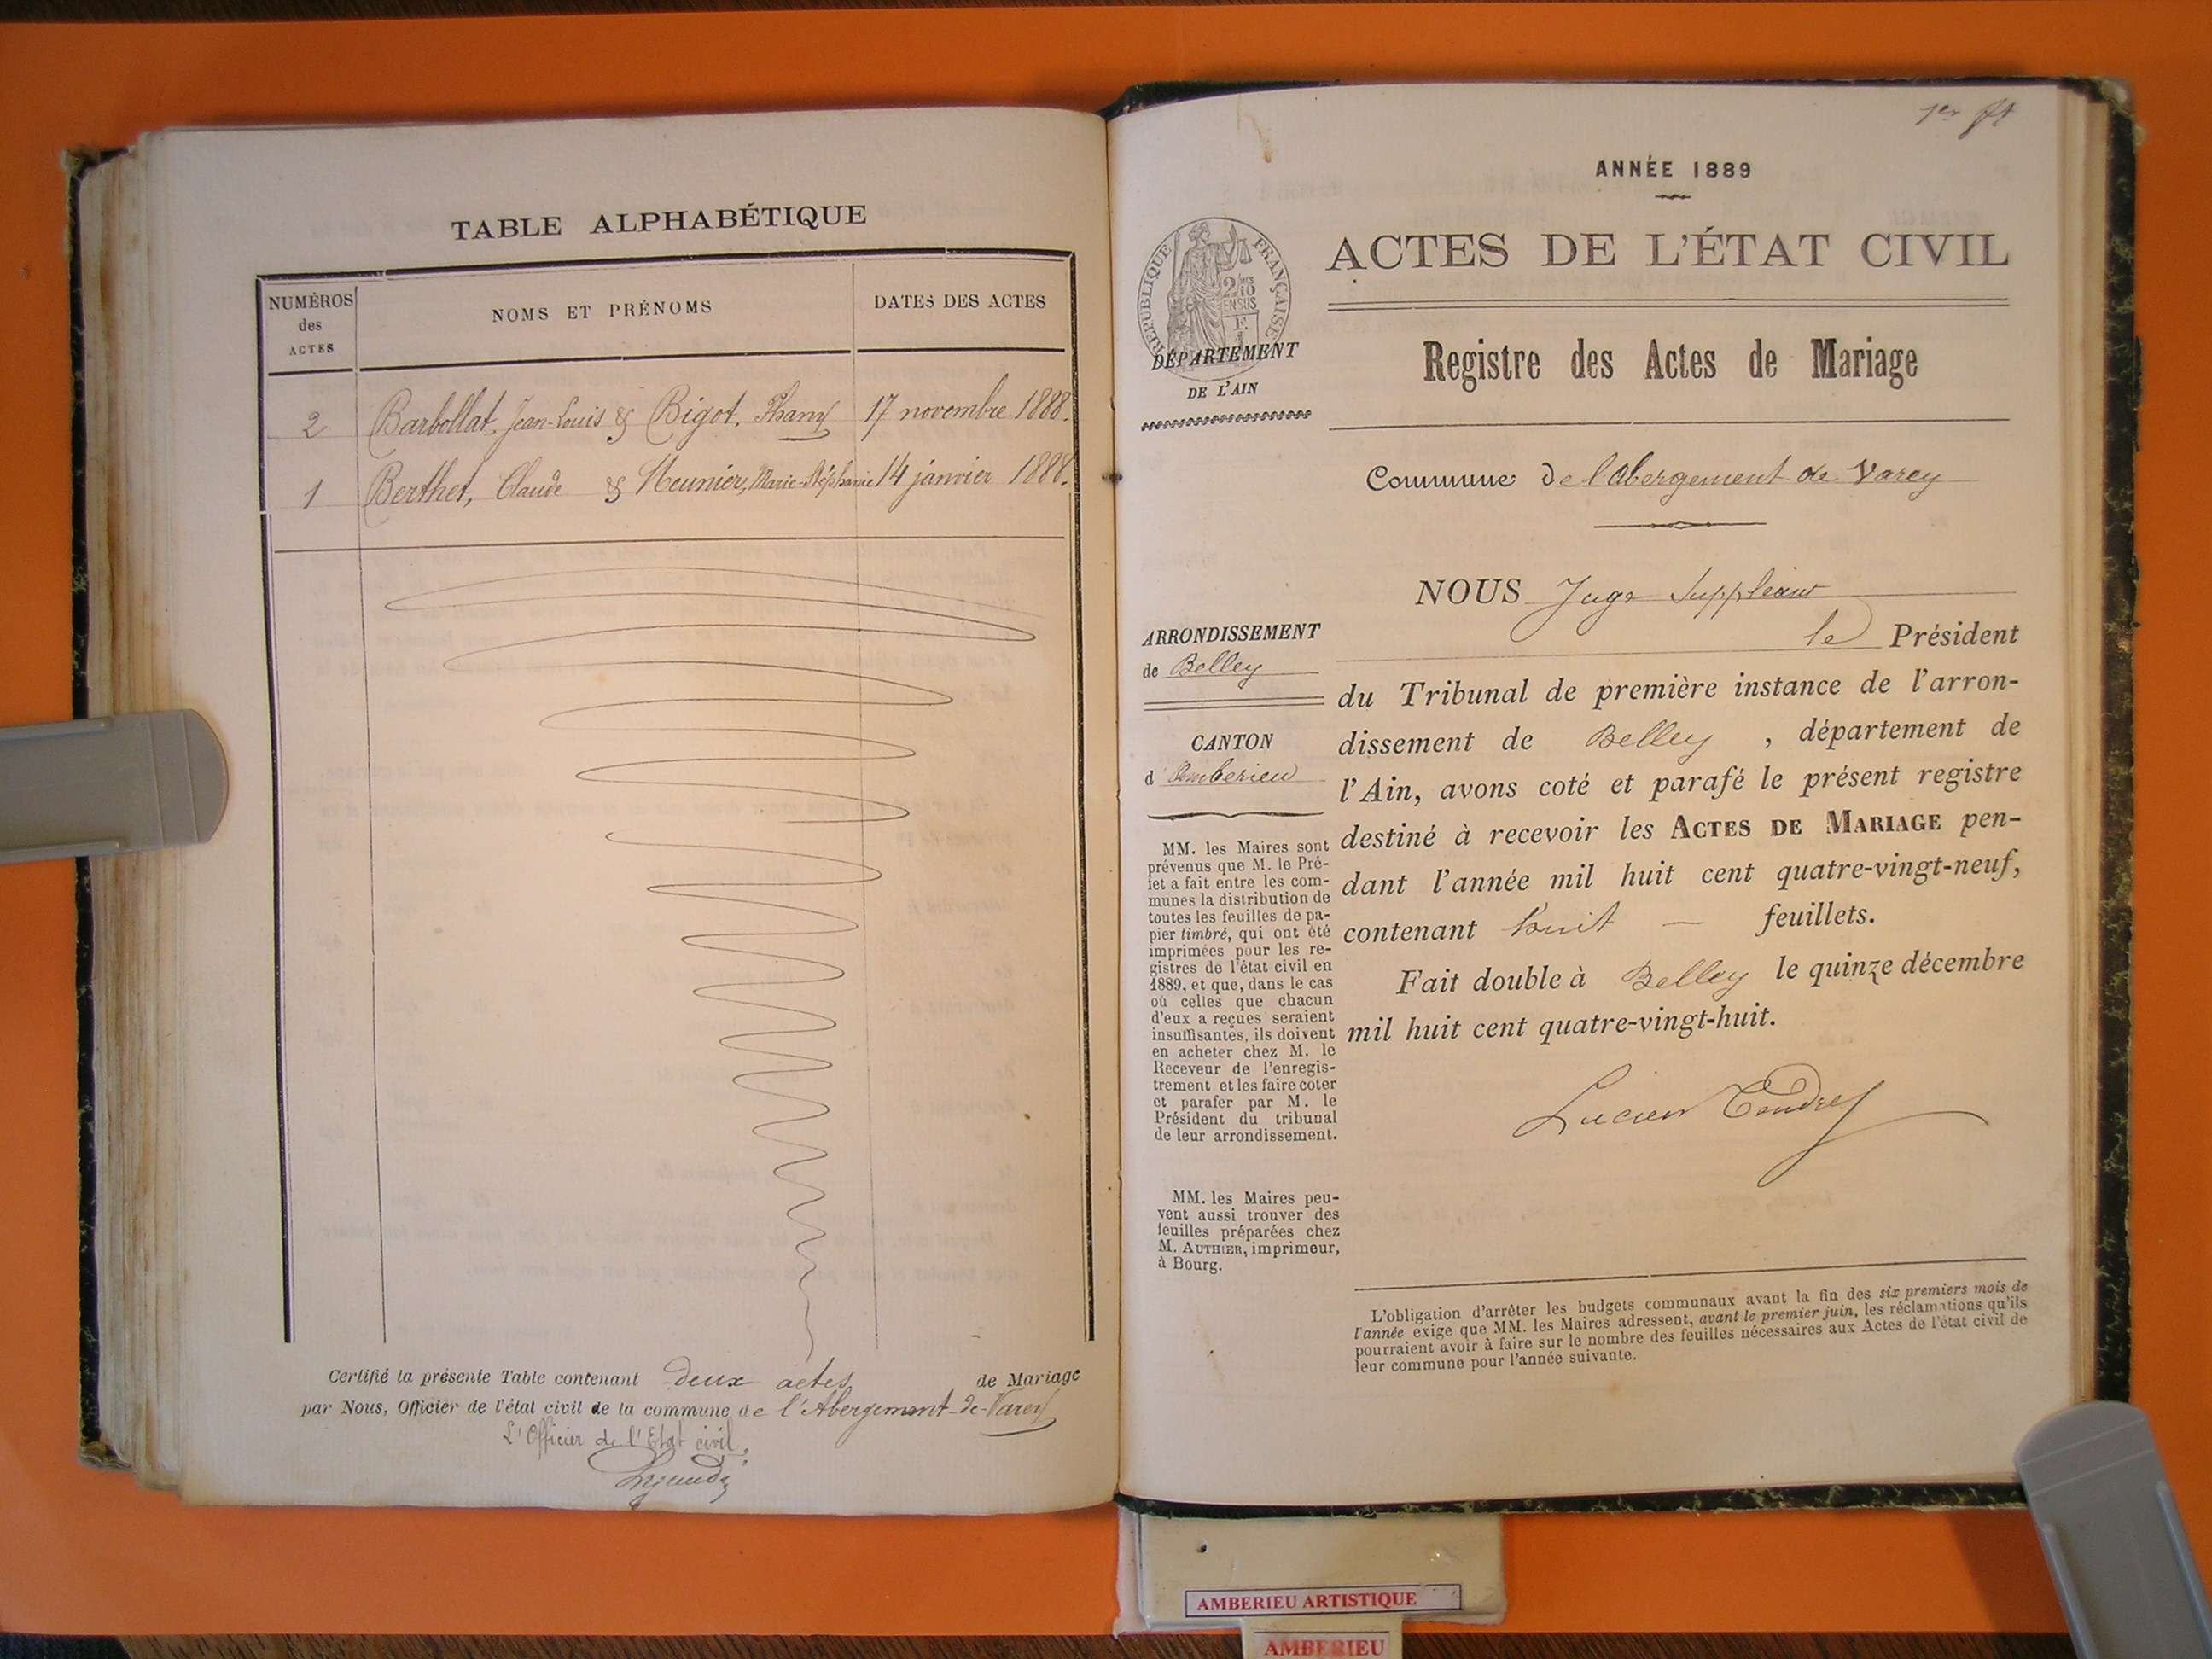 TABLE ALPHABÉTIQUE
NUMÉROS
des
ACTES
NOMS ET PRÉNOMS
DATES DES ACTES
2 Barbollat, Jean-Louis & Bigot, Phany 17 novembre 1888.
1 Berthet, Claude & Meunier, Marie-Stéphanie 14 janvier 1888.
Certifié la présente Table contenant deux actes de Mariage
par Nous, Officier de l'état civil de la commune de l'Abergement-de-Varey
L'Officier de l'Etat civil.
1er ft
ANNÉE 1889
ACTES DE L'ÉTAT CIVIL
RÉPUBLIQUE FRANÇAISE
2/10
EN SUS
DÉPARTEMENT
DE L'AIN
Registre des Actes de Mariage
Commune de l'abergement de Varey
NOUS Juge Suppléant
le Président
du Tribunal de première instance de l'arron-
dissement de Belley, département de
l'Ain, avons coté et parafé le présent registre
destiné à recevoir les ACTES DE MARIAGE pen-
dant l'année mil huit cent quatre-vingt-neuf,
contenant huit — feuillets.
Fait double à Belley le quinze décembre
mil huit cent quatre-vingt-huit.
Lucien
ARRONDISSEMENT
de Belley
CANTON
d'Amberieu
MM. les Maires sont
prévenus que M. le Pré-
fet a fait entre les com-
munes la distribution de
toutes les feuilles de pa-
pier timbré, qui ont été
imprimées pour les re-
gistres de l'état civil en
1889, et que, dans le cas
où celles que chacun
d'eux a reçues seraient
insuffisantes, ils doivent
en acheter chez M. le
Receveur de l'enregis-
trement et les faire coter
et parafer par M. le
Président du tribunal
de leur arrondissement.
MM. les Maires peu-
vent aussi trouver des
feuilles préparées chez
M. AUTHIER, imprimeur,
à Bourg.
L'obligation d'arrêter les budgets communaux avant la fin des six premiers mois de
l'année exige que MM. les Maires adressent, avant le premier juin, les réclamations qu'ils
pourraient avoir à faire sur le nombre des feuilles nécessaires aux Actes de l'état civil de
leur commune pour l'année suivante.
AMBERIEU ARTISTIQUE
AMBERIEU